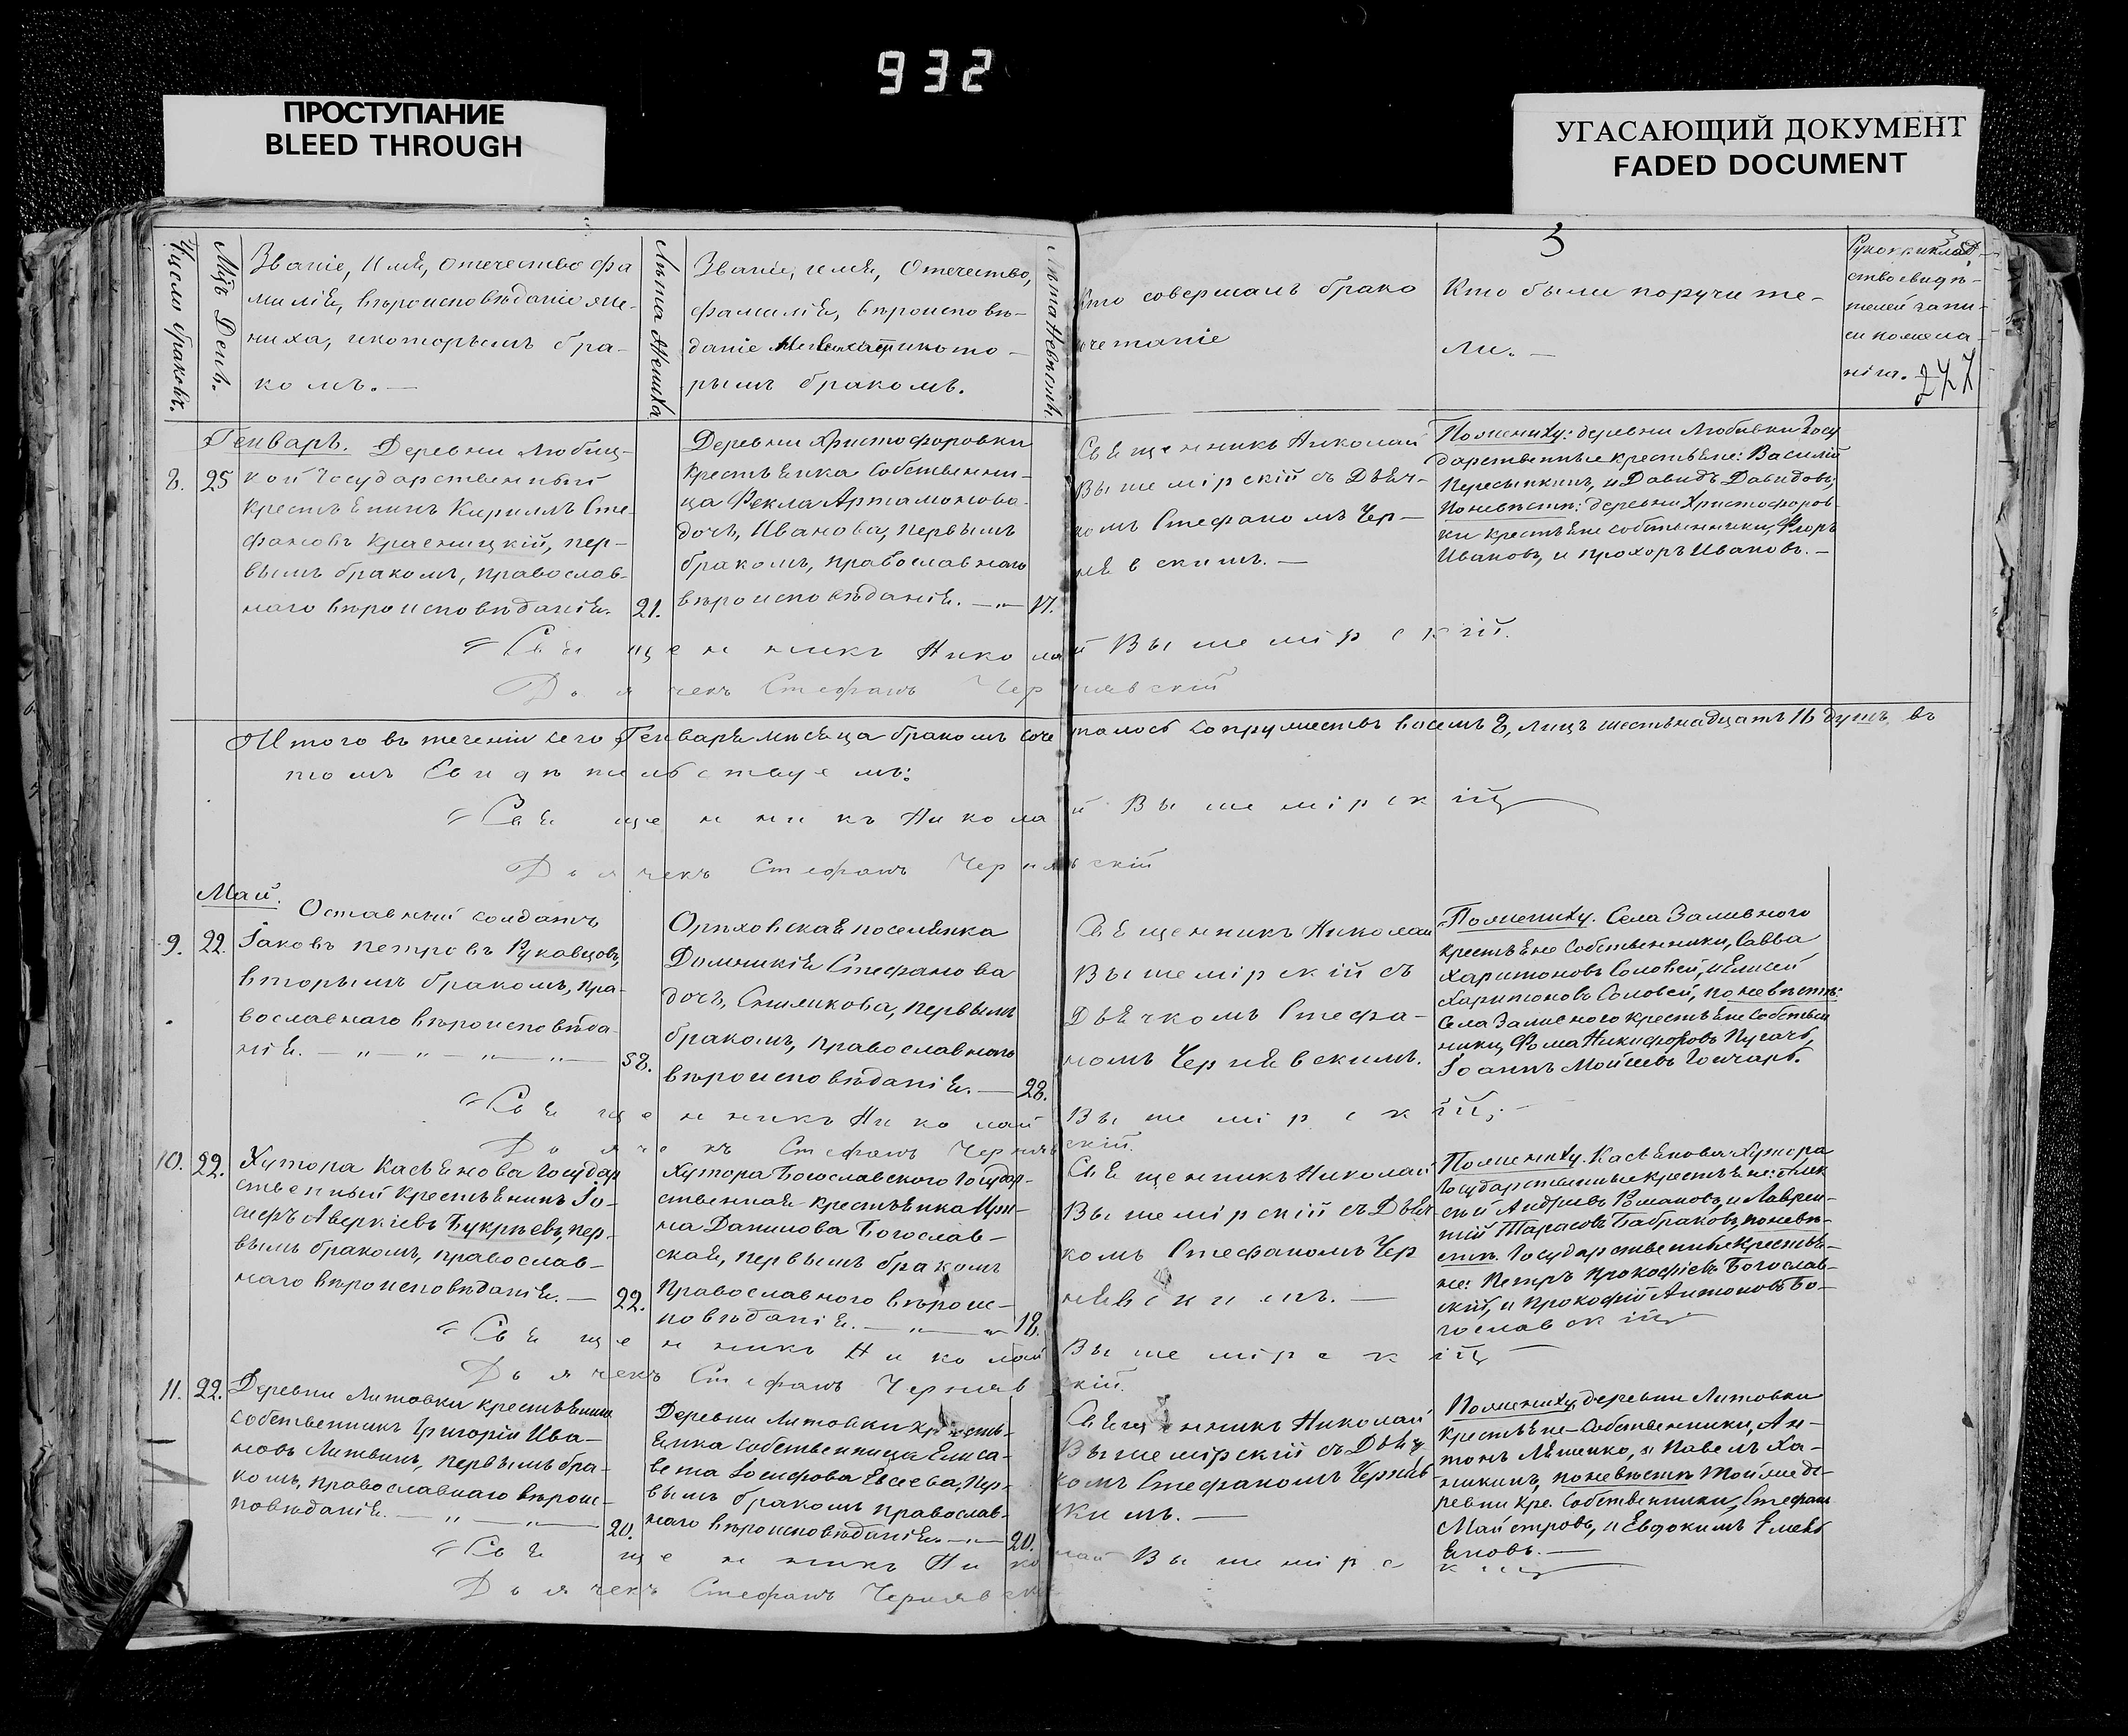 932
ПРОСТУПАНИЕ
BLEED THROUGH
УГАСАЮЩИЙ ДОКУМЕНТ
FADED DOCUMENT
3
277
Число браковъ.
Мцъ День.
Званіе, имя, отечество фа
милія, вѣроисповѣданіе же-
ниха, и которымъ бра-
комъ. —
Лѣта Жениха
Званіе, имя, Отечество,
фамилія, вѣроисповѣ-
даніе и кото-
рымъ бракомъ.
Лѣта Невѣсты.
Кто совершалъ брако
сочетаніе
Кто были поручите-
ли. —
Рукоприклад
ство свидѣ-
телей запи-
си по жела-
нію.
Генварь. Деревни Любиц-
8. 25 кой Государственный
крестьянинъ Кириллъ Сте-
фановъ Красницкій, пер-
вымъ бракомъ, православ-
наго вѣроисповѣданія. 21.
Деревни Христофоровки
крестьянка собственни-
ца Фекла Артамонова
дочь, Иванова, первымъ
бракомъ, православнаго
вѣроисповѣданія. — 17.
Священникъ Николай
Вышемірскій съ Дьяч-
комъ Стефаномъ Чер-
нявскимъ. —
По жениху: деревни Любивки Госу
дарственные крестьяне: Василій
Пересыпкинъ, и Давидъ Давидовъ;
по невѣстѣ: деревни Христофоров
ки крестьяне собственники, Флоръ
Ивановъ, и Прохоръ Ивановъ. —
Священникъ Николай Вышемірскій.
Дьячекъ Стефанъ Чернявскій
Итого въ теченіи сего Генваря мѣсяца бракомъ сочеталось супружествъ восемь 8, лицъ шестьнадцать 16 душъ, въ
томъ Свидѣтельствуемъ:
Священникъ Николай Вышемірскій
Дьячекъ Стефанъ Чернявскій
Май. Оставный солдатъ
9. 22. Іаковъ Петровъ Рукавцовъ,
вторымъ бракомъ, пра-
вославнаго вѣроисповѣда-
нія. — 58.
Орѣховская поселянка
Домникія Стефанова
дочь, первымъ
бракомъ, православнаго
вѣроисповѣданія. — 28.
Священникъ Николай
Вышемірскій съ
Дьячкомъ Стефа-
номъ Чернявскимъ.
По жениху. Села Заливного
крестьяне Собственники, Савва
Харитоновъ Соловей, и Елисей
Харитоновъ Соловей, по невѣстѣ:
Села Заливного крестьяне собствен
ники, Фома Никифоровъ Пугачь,
Іоаннъ Мойсеевъ Гончаръ.
Священникъ Николай Вышемірскій. —
Дьячекъ Стефанъ Чернявскій.
10. 22. Хутора Касьянова Государ
ственный крестьянинъ Іо-
сифъ Аверкіевъ Букрѣевъ, пер-
вымъ бракомъ, православ-
наго вѣроисповѣданія. — 22.
Хутора Богославского Государ-
ственная крестьянка Ири-
на Данилова Богослав-
ская, первымъ бракомъ
православного вѣроис-
повѣданія. — 18.
Священникъ Николай
Вышемірскій съ Дьяч
комъ Стефаномъ Чер
нявскимъ. —
По жениху. Касьянова хутора
Государственные крестьяне: Алек
сѣй Андреевъ Романовъ, и Лаврен-
тій Тарасовъ Бабраковъ, по невѣ-
стѣ. Государственные крестья-
не: Петръ Прокофіевъ Богослав-
скій, и Прокофій Антоновъ Бо-
гославскій
Священникъ Николай Вышемірскій
Дьячекъ Стефанъ Чернявскій.
11. 22. Деревни Литовки крестьянинъ
собственникъ Григорій Ива-
новъ Литвинъ, первымъ бра-
комъ, православнаго вѣроис-
повѣданія. — 20.
Деревни Литовки кресть-
янка собственница Елиса-
вета Іосифова Евсеева, пер-
вымъ бракомъ православ-
наго вѣроисповѣданія. — 20.
Священникъ Николай
Вышемірскій съ Дьяч
комъ Стефаномъ Черняв-
скимъ. —
По жениху, деревни Литовки
крестьяне — Собственники, Ан-
тонъ Ляшенко, и Павелъ Ха-
никинъ, по невѣстѣ той же де-
ревни кре. собственники, Стефанъ
Майстровъ, и Евдокимъ Емель
яновъ. —
Священникъ Николай Вышемірскій
Дьячекъ Стефанъ Чернявскій